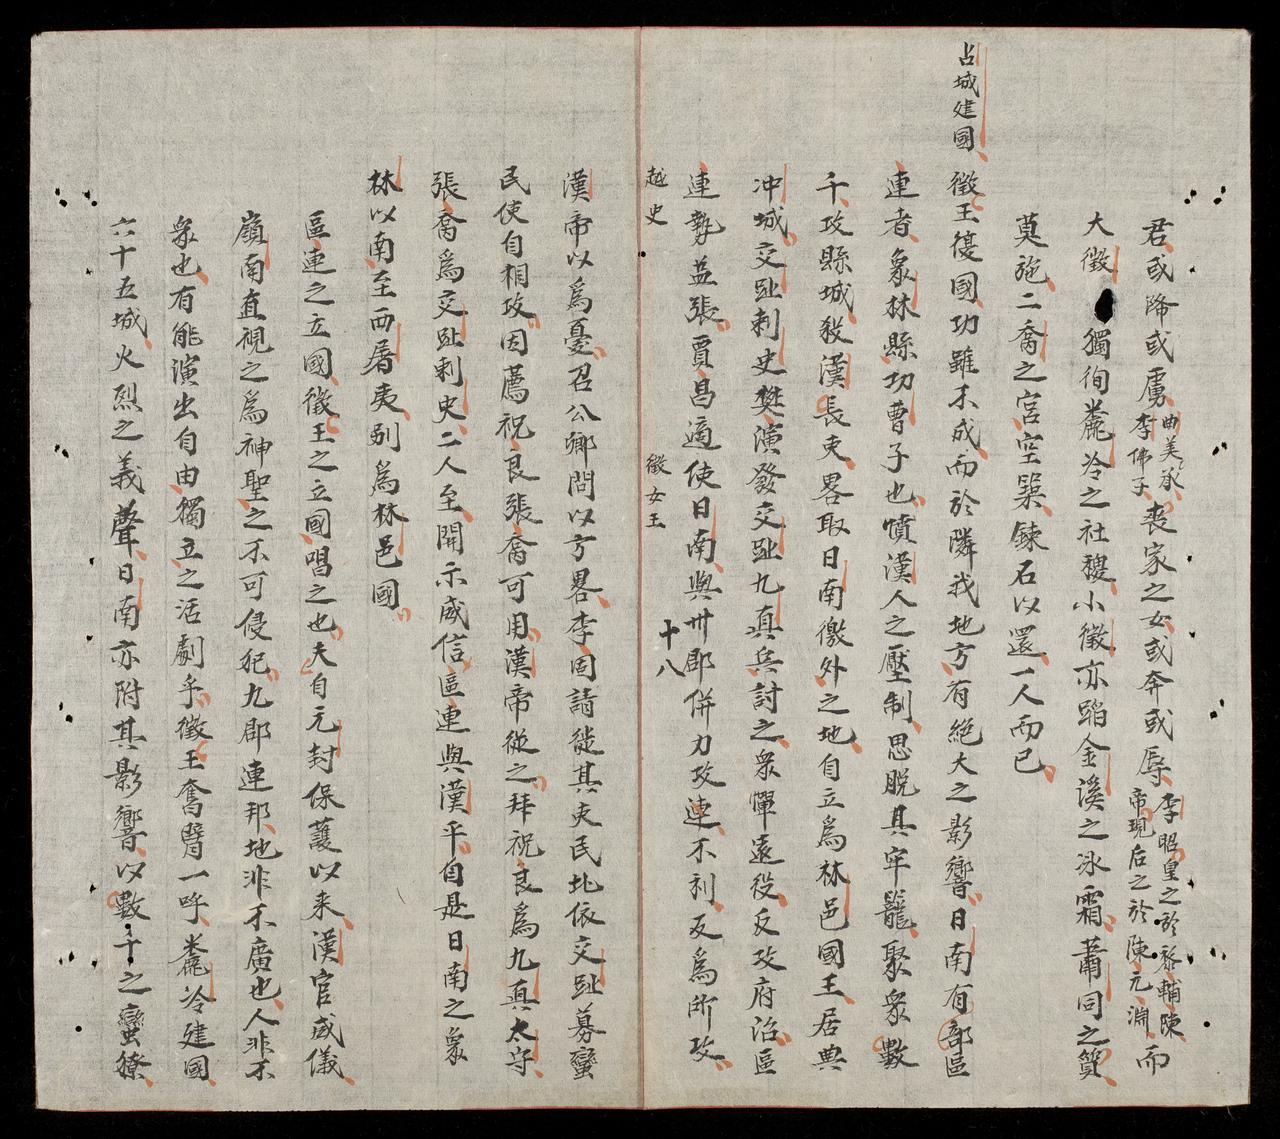 君或降或虜曲美承李佛子喪家之女或奔或辱李昭皇之於黎輔陳帝現后之於陳元淵而
大徵獨徇麊泠之社稷小徵亦蹈金溪之冰霜蕭同之質
莫施二喬之宮空築鍊石以還一人而已
占城建國
徵王復國功雖不成而於隣我地方有絕大之影響日南有部區
連者象林縣功曹子也憤漢人之壓制思脫其牢籠聚衆數
千攻縣城殺漢長吏畧取日南徼外之地自立為林邑國王居典
冲城交趾刺史樊演發交趾九真兵討之衆憚遠役反攻府治區
連勢益張賈昌適使日南與卅郡併力攻連不利反為所攻
越史 徵女王 十八
漢帝以為憂召公卿問以方畧李固請徙其吏民北依交趾募蠻
民使自相攻因薦祝良張喬可用漢帝從之拜祝良為九真太守
張喬為交趾刺史二人至開示威信區連與漢平自是日南之象
林以南至西屠夷別為林邑國
區連之立國徵王之立國唱之也夫自元封保護以来漢官威儀
嶺南直視之為神聖之不可侵犯九郡連邦地非不廣也人非不
衆也有能演出自由獨立之活劇乎徵王奮臂一呼麊泠建國
六十五城火烈之義聲日南亦附其影響以數千之蠻獠